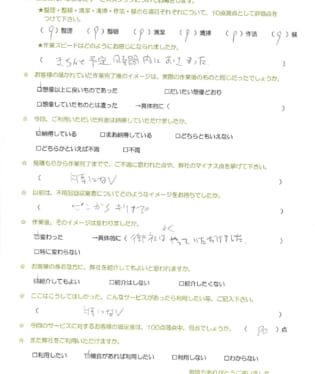 ★整理・整頓・清潔・清掃・作法・躾の6項目それぞれについて、10点満点として評価点を
つけて下さい。
(9)整理 (9)整頓 (9)清潔 (9)清掃 (9)作法 (9)躾
★作業スピードはどのようにお感じになられましたか。
お客様の描かれていた作業完了後のイメージは、実際の作業後のものと同じだったでしょうか。
□想像以上に良いものであった □だいたい想像どおり
□想像していたものとは違った →具体的に( )
今回、ご利用いただいた料金は納得していただけましたか。
納得している □まあ納得している □どちらともいえない
□どちらかといえば不満 □不満
見積もりから作業完了までで、ご不満に思われた点や、弊社のマイナス点を挙げて下さい。
(特になし)
以前は、不用回収業者についてどのようなイメージをお持ちでしたか。
作業後、そのイメージは変わりましたか。
変わった →具体的に(御社はよくやっていただけました。)
□特に変わらない
お客様の身近な方に、弊社を紹介してもよいと思われますか。
紹介してもよい □紹介はしない □紹介したくない
ここはこうしてほしかった、こんなサービスがあったら利用したい等、ご記入下さい。
(特になし)
今回のサービスに対するお客様の満足度は、100点満点中、何点でしょうか。(90)点
また弊社をご利用いただけますか。
□利用したい 機会があれば利用したい □利用しない □わからない